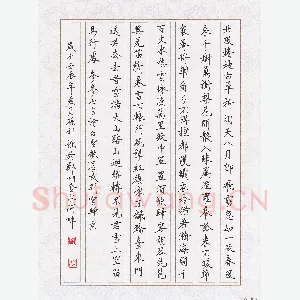 北風捲地白草折胡天八月即飛雪忽如一夜春風
來千樹萬樹梨花開散入珠簾濕羅幕狐
裘不暖錦衾薄將軍角弓不得控都護鐵衣冷難著瀚海闌干
百丈冰愁雲慘淡萬里凝中軍置酒飲歸客胡琴琵琶
與羌笛紛紛暮雪下轅門風掣紅旗凍不翻輪臺東門
送君去去時雪滿天山路山迴路轉不見君雪上空留
馬行處岑參七言詩白雪歌送武判官歸京
Shufawang.CN